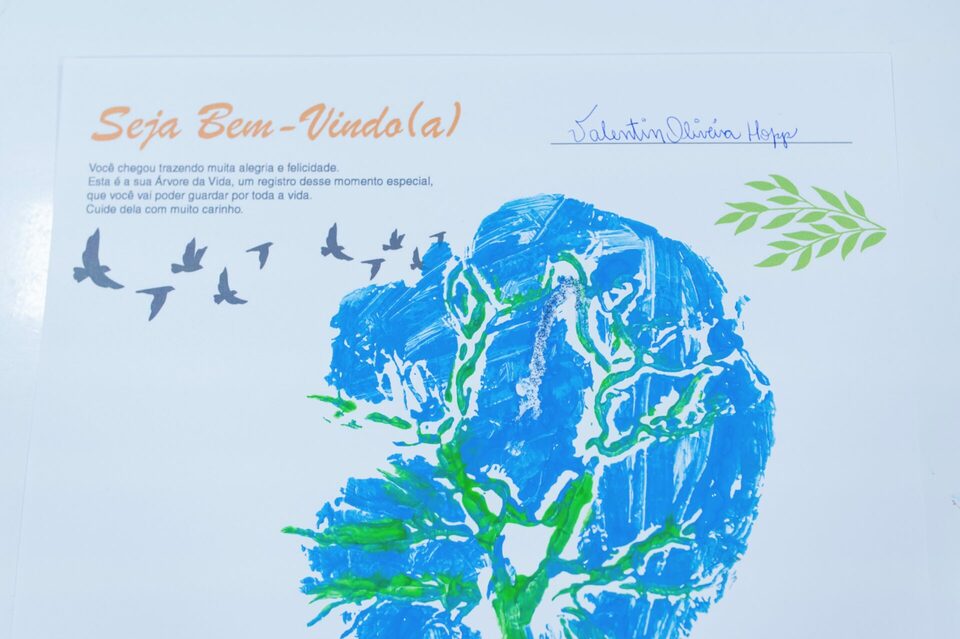 Seja Bem-Vindo(a)
Valentin Oliveira Hopp
Você chegou trazendo muita alegria e felicidade.
Esta é a sua Árvore da Vida, um registro desse momento especial,
que você vai poder guardar por toda a vida.
Cuide dela com muito carinho.